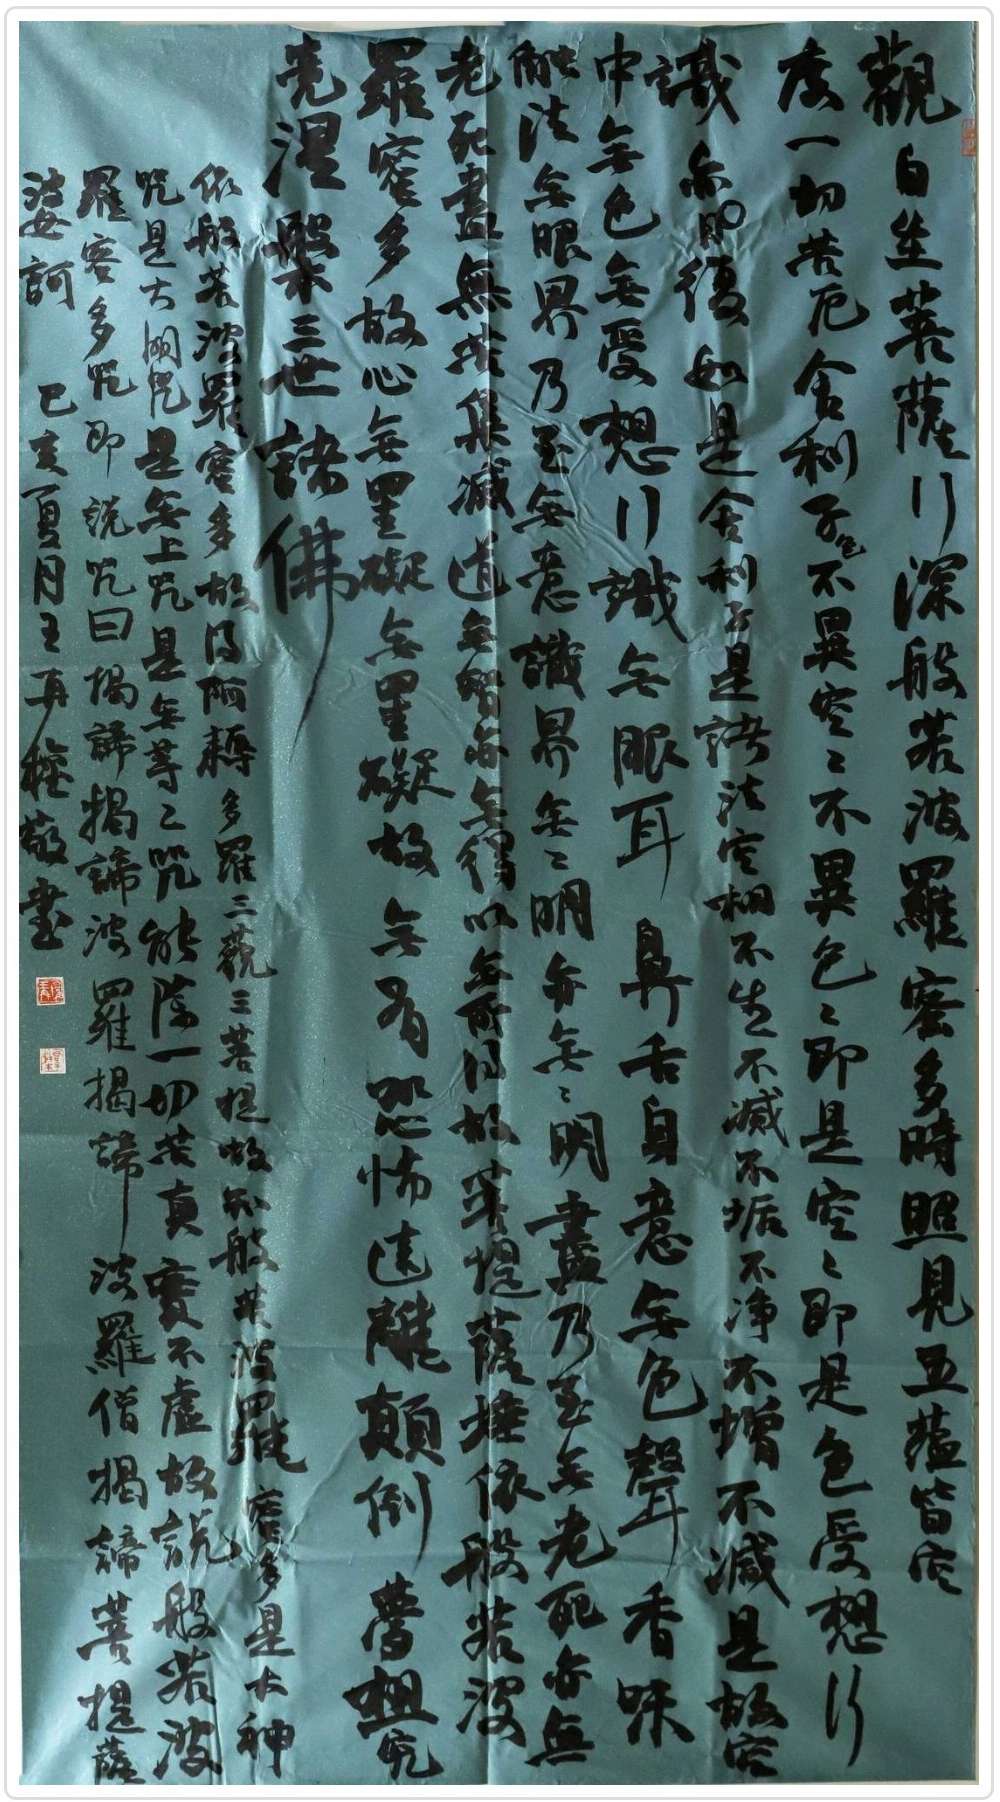 觀自在菩薩行深般若波羅蜜多時照見五蕴皆空
度一切苦厄舍利子色不異空〻不異色〻即是空〻即是色受想行
識亦即復如是舍利子是諸法空相不生不滅不垢不净不增不減是故空
中無色無受想行識無眼耳鼻舌身意無色聲香味
触法無眼界乃至無意識界無〻明亦無〻明盡乃至無老死亦無
老死盡無苦集滅道無智亦無得以無所得故菩提薩埵依般若波
羅蜜多故心無罣礙無罣礙故無有恐怖遠離顛倒夢想究
竟涅槃三世諸佛
依般若波羅蜜多故得阿耨多羅三藐三菩提故知般若波羅蜜多是大神
咒是大明咒是無上咒是無等〻咒能除一切苦真實不虛故説般若波
羅密多咒即説咒曰揭諦揭諦波羅揭諦波羅僧揭諦菩提薩
婆訶 己亥夏月王再耀敬書